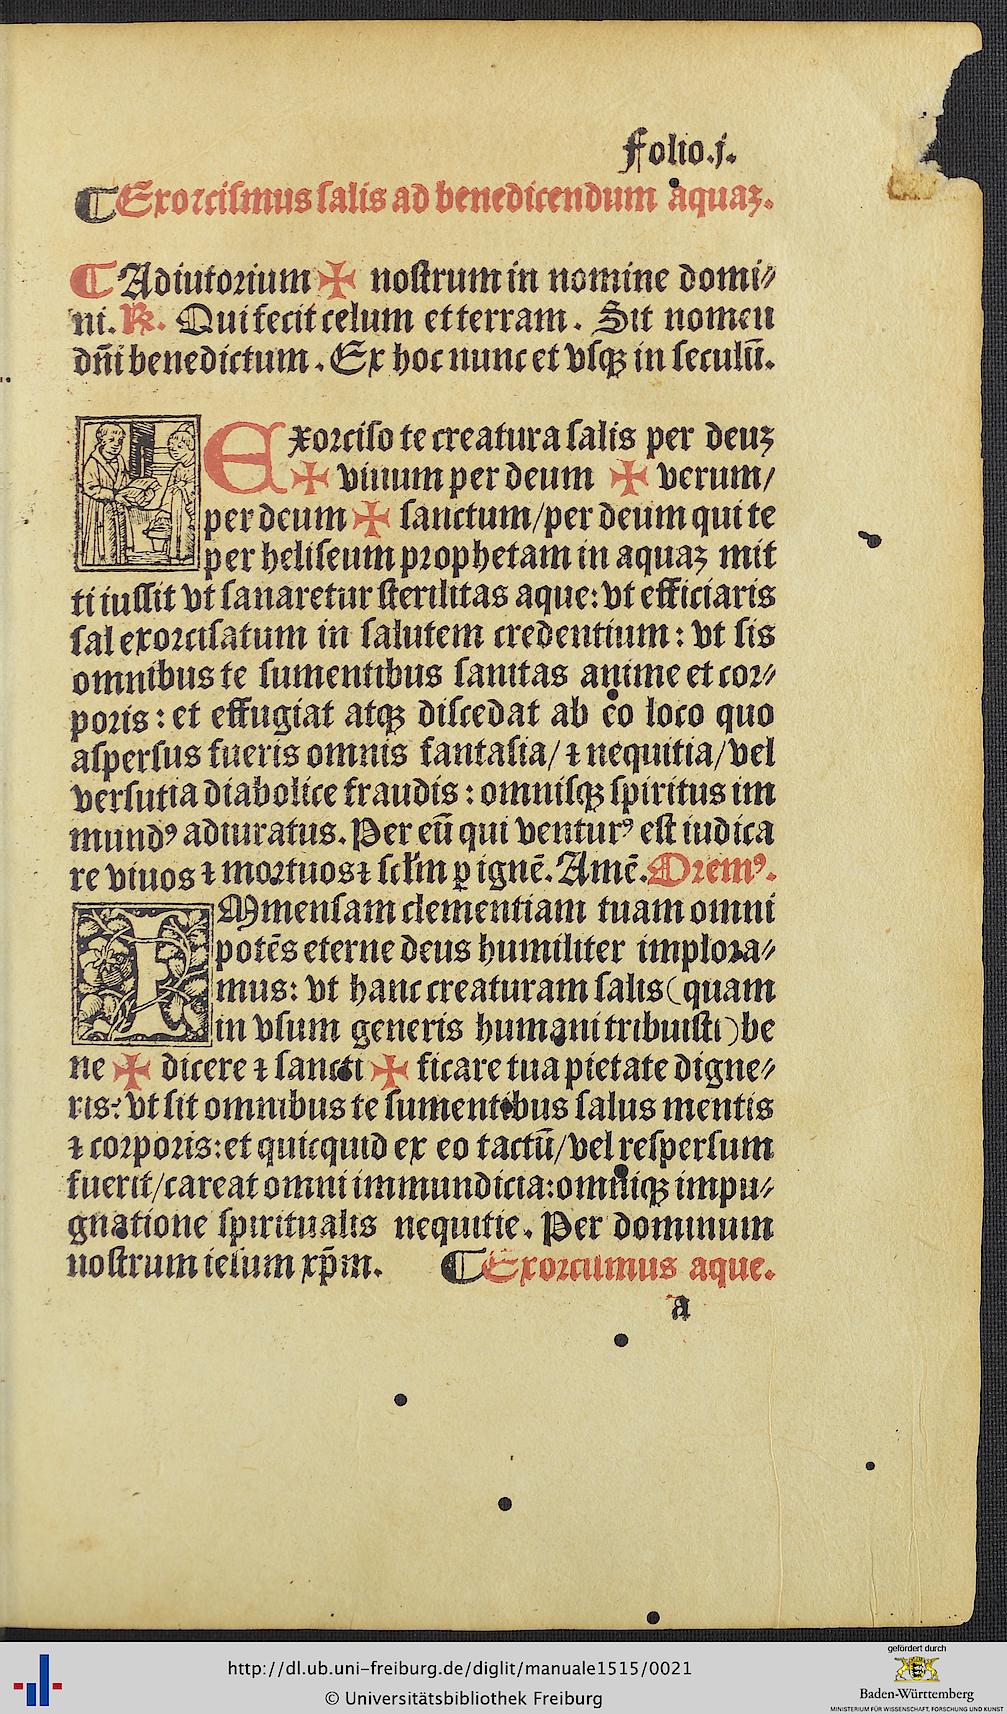 Folio.j.
⁋Exorcismus salis ad benedicendum aquaʒ.
⁋Adiutorium ✠ nostrum in nomine domi⸗
ni. ℞. Qui fecit celum et terram. Sit nomen
dn̄i benedictum. Ex hoc nunc et vsqꝫ in seculū.
Exorciso te creatura salis per deuʒ
✠ viuum per deum ✠ verum/
per deum ✠ sanctum/per deum qui te
per heliseum prophetam in aquaʒ mit
ti iussit vt sanaretur sterilitas aque: vt efficiaris
sal exorcisatum in salutem credentium: vt sis
omnibus te sumentibus sanitas anime et cor⸗
poris: et effugiat atqꝫ discedat ab eo loco quo
aspersus fueris omnis fantasia/ ⁊ nequitia/vel
versutia diabolice fraudis: omnisqꝫ spiritus im
mundꝰ adiuratus. Per eū qui venturꝰ est iudica
re viuos ⁊ mortuos ⁊ sclm̄ ꝑ ignē. Amē. Oremꝰ.
IMmensam clementiam tuam omni
potēs eterne deus humiliter implora⸗
mus: vt hanc creaturam salis (quam
in vsum generis humani tribuisti) be
ne ✠ dicere ⁊ sancti ✠ ficare tua pietate digne⸗
ris: vt sit omnibus te sumentibus salus mentis
⁊ corporis: et quicquid ex eo tactū/vel respersum
fuerit/careat omni immundicia: omniqꝫ impu⸗
gnatione spiritualis nequitie. Per dominum
nostrum iesum xp̄m. ⁋Exorcismus aque.
a
http://dl.ub.uni-freiburg.de/diglit/manuale1515/0021
© Universitätsbibliothek Freiburg
gefördert durch
Baden-Württemberg
MINISTERIUM FÜR WISSENSCHAFT, FORSCHUNG UND KUNST